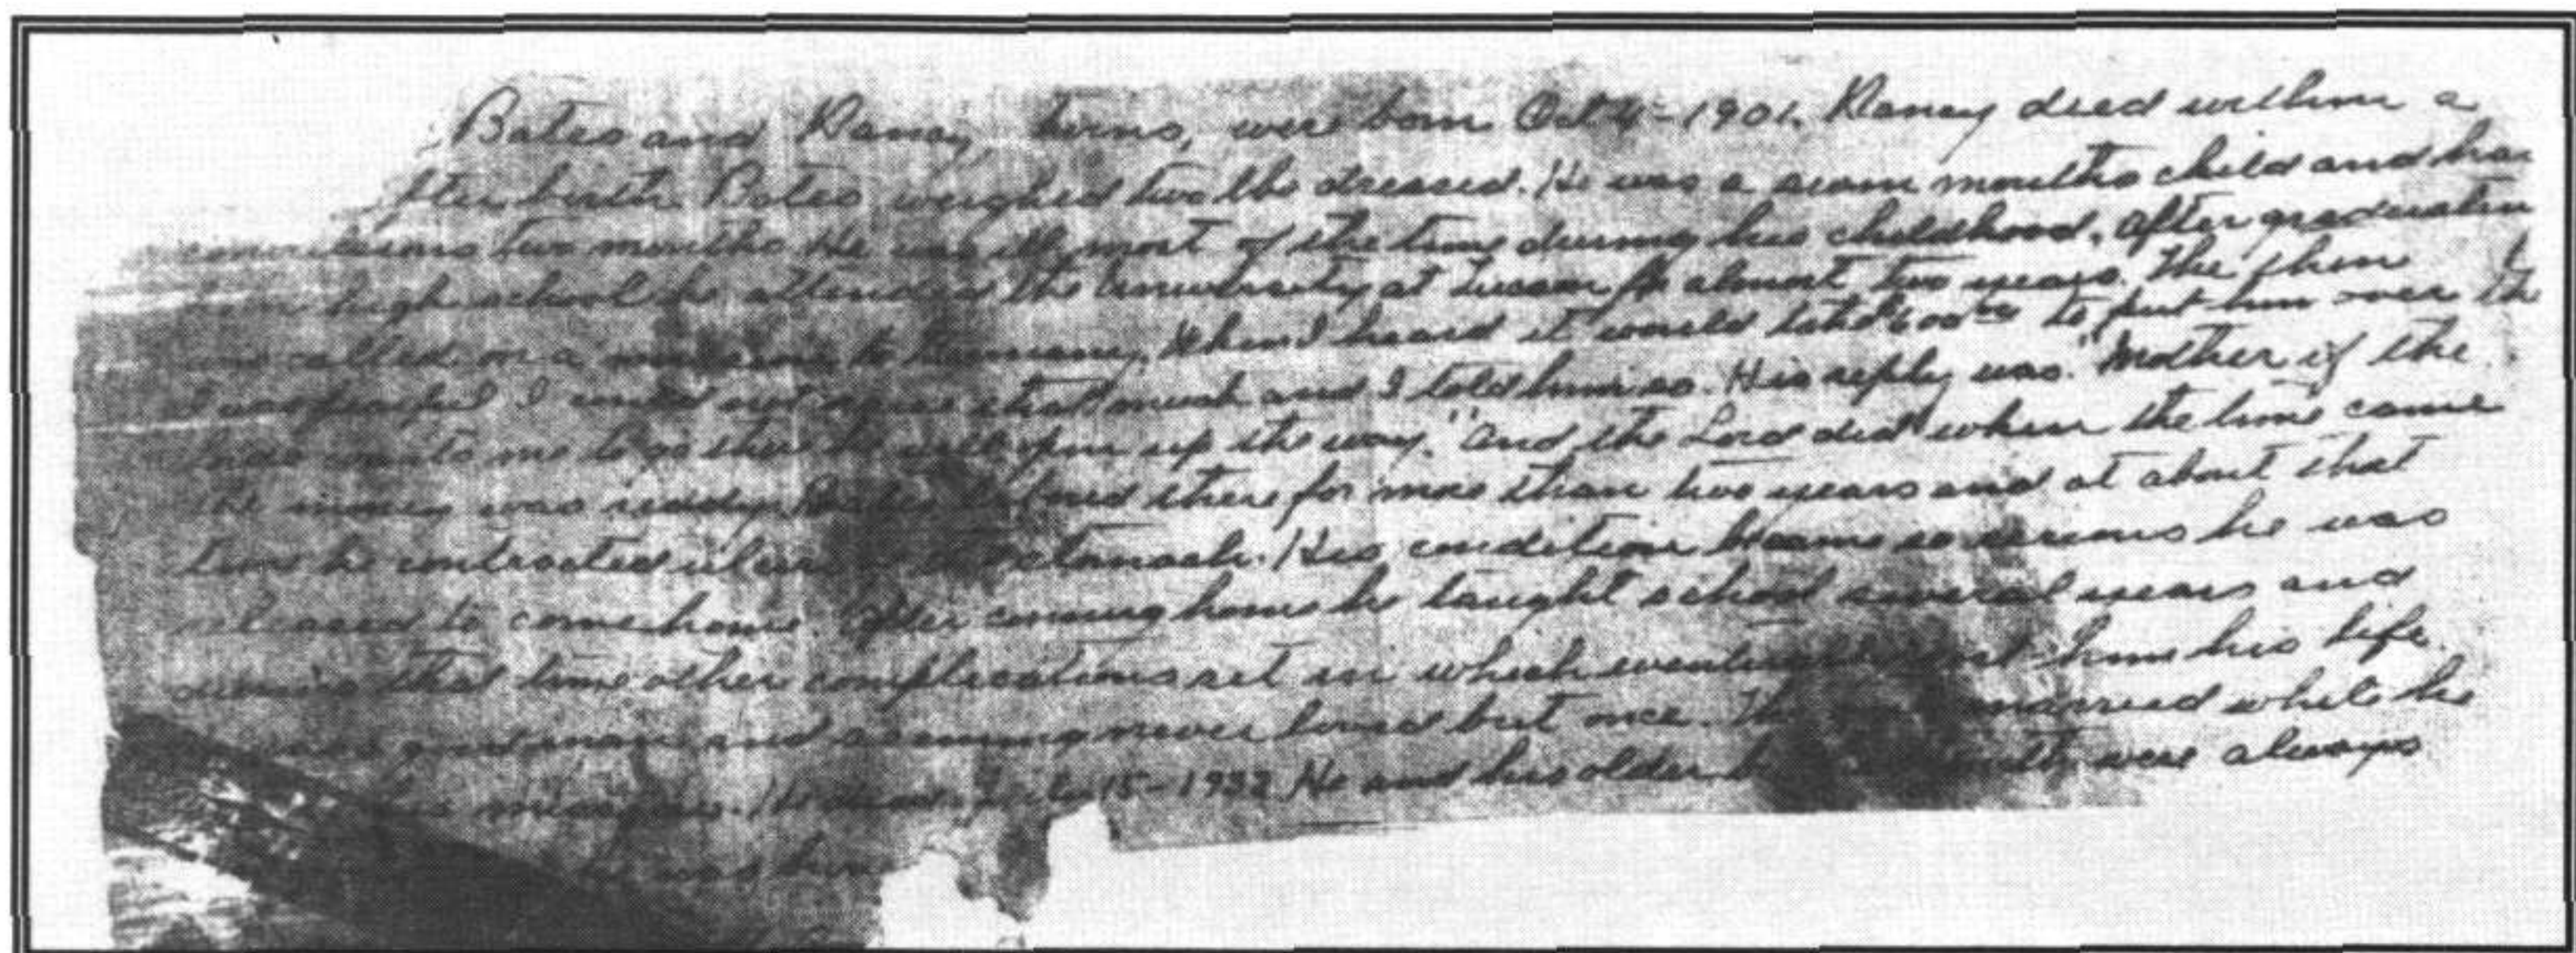 Bates and Nancy, twins, were born Oct 4-1901. Nancy died within a
after birth Bates weighed two lbs dressed. He was a seven months child and had
convulsions two months He was ill most of the time during his childhood, after graduation
from high school he attended the University at Tucson for almost two years. He then
was called on a mission to Germany, When I heard it would take $600.00 to put him over there
I was fearful I could not raise that much and I told him so. His reply was. "Mother if the
Lord wants me to go there he will open up the way." and the Lord did when the time came
the money was ready. Bates labored there for more than two years and at about that
time he contracted ulcers stomach. His condition became so serious he was
released to come home. After coming home he taught school several years and
during that time other complications set in which eventually cost him his life.
good man and seeming never loved but once. The married while he
15-1932 He and his older were always